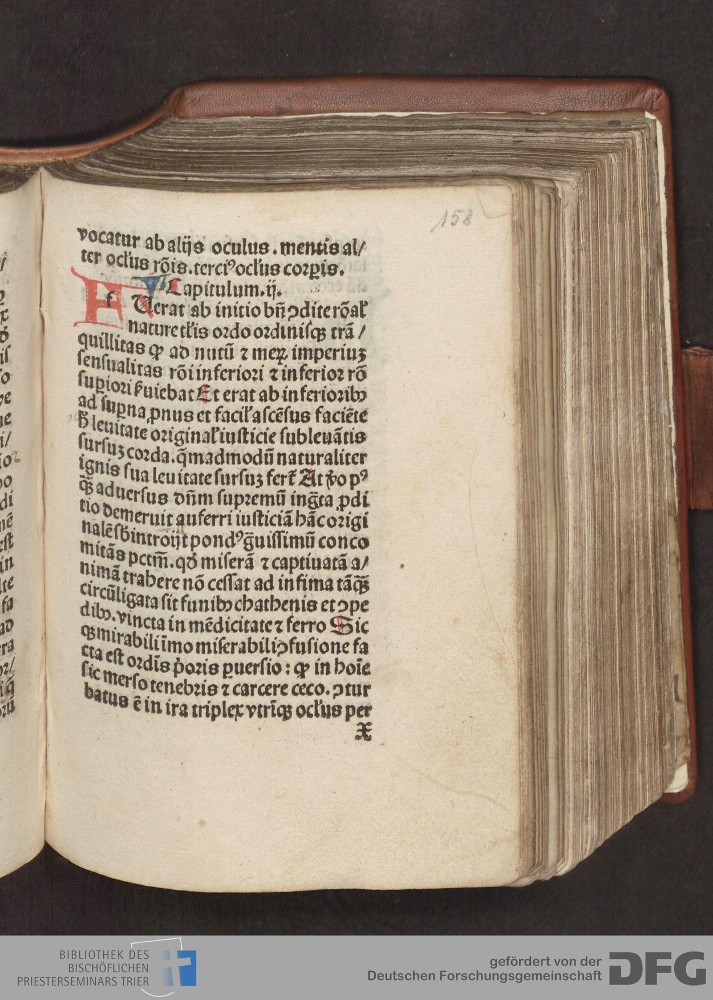 158
vocatur ab alijs oculus. mentis al/
ter ocl'us rõis. tercꝰ ocl'us corꝑis.
Capitulum .ij.
FUerat ab initio bñ ↄdite rõal'
nature tl'is ordo ordinisqꝫ trã/
quillitas ꝙ ad nutũ ⁊ meꝝ imperiuꝫ
sensualitas rõi inferiori ⁊ inferior rõ
suꝑiori ẜuiebat Et erat ab inferioribꝫ
ad suꝑna ꝓnus et facil' ascẽsus faciẽte
ħ leuitate original' iusticie subleuãtis
sursuꝫ corda. q̃madmodũ naturaliter
ignis sua leuitate sursuꝫ fert̃ At ꝟo pꝰ
qꝫ̃ aduersus dñm supremũ ing̃ta ꝓdi
tio demeruit auferri iusticiã hãc origi
nalẽ sb̃introijt pondꝰ g̃uissimũ conco
mitãs pctm̃. qd̛ miserã ⁊ captiuatã a/
nimã trahere nõ cessat ad infima tãqꝫ̃
circũligata sit funibꝫ chathenis et ↄpe
dibꝫ. vincta in mẽdicitate ⁊ ferro Sic
qꝫ mirabili ĩmo miserabili ↄfusione fa
cta est ordĩs p̛oris ꝑuersio : ꝙ in hoĩe
sic merso tenebris ⁊ carcere ceco. ↄtur
batus ẽ in ira triplex vtrĩqꝫ ocl'us per
X
BIBLIOTHEK DES
BISCHÖFLICHEN
PRIESTERSEMINARS TRIER
gefördert von der
Deutschen Forschungsgemeinschaft
DFG